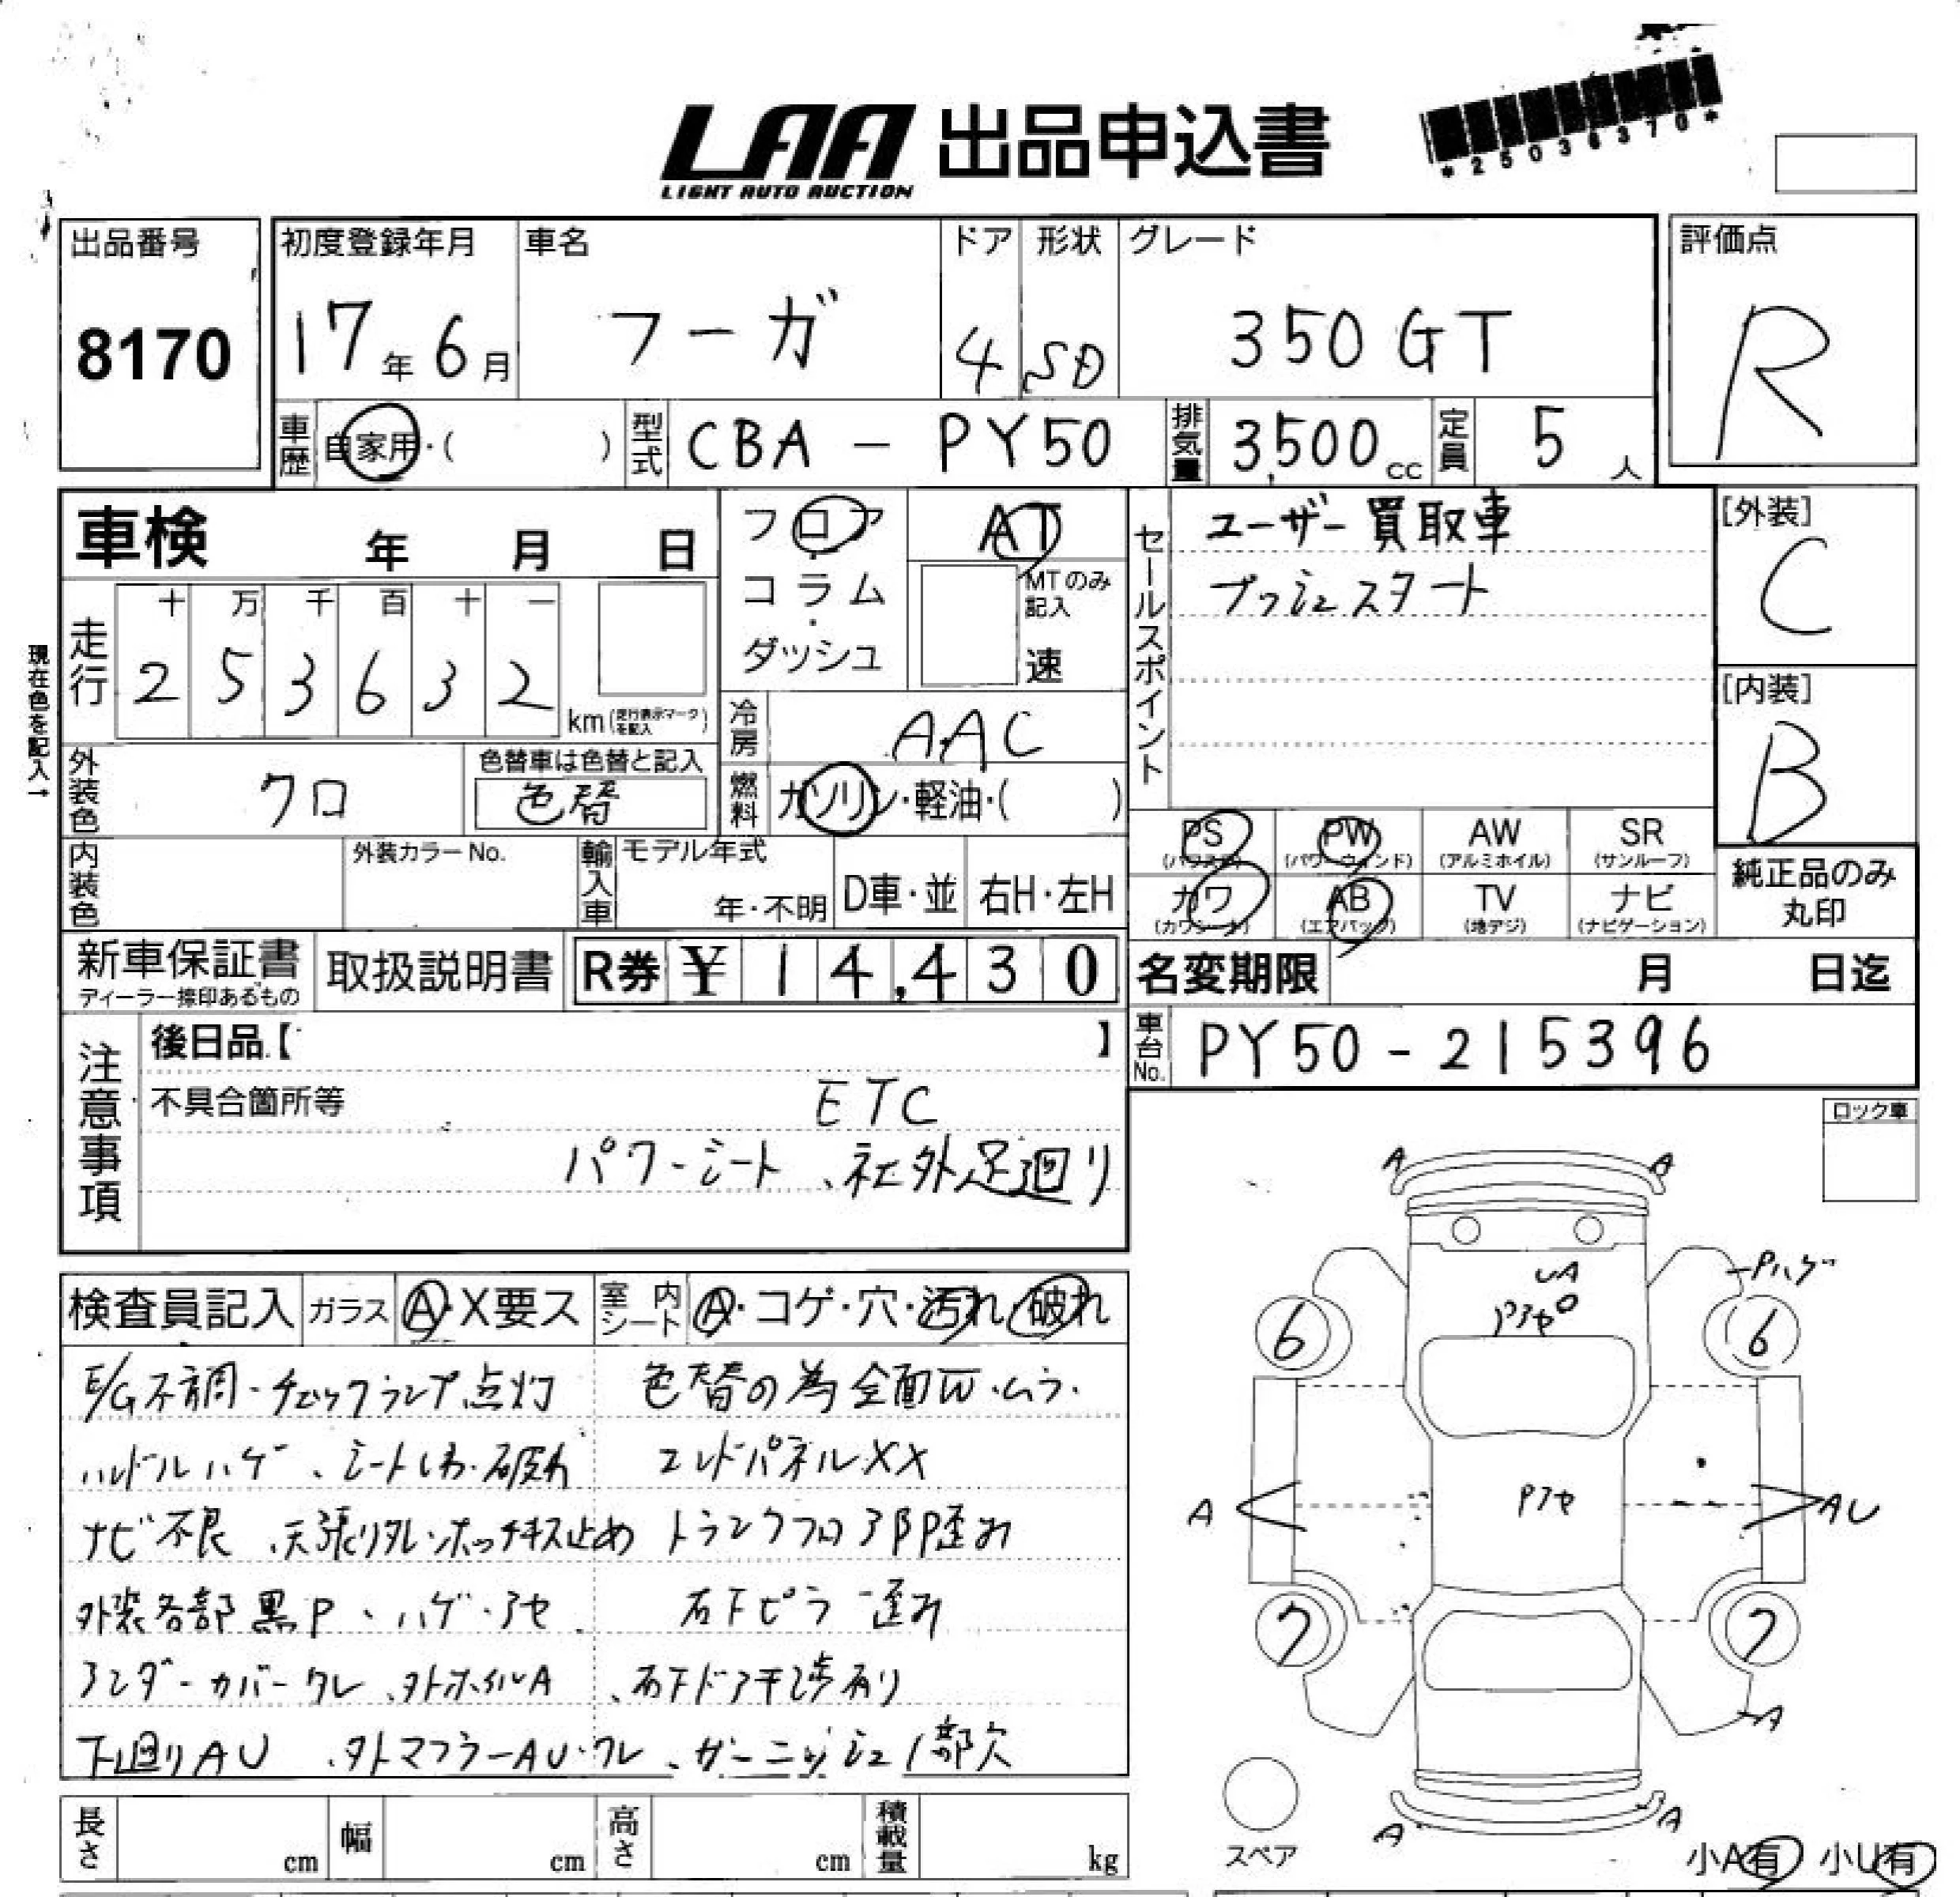 LAA 出品申込書
LIGHT AUTO AUCTION
出品番号
8170
初度登録年月
17年6月
車名
フーガ
ドア
4
形状
SD
グレード
350GT
評価点
R
車歴 自家用・( )
型式 CBA - PY50
排気量 3,500cc
定員 5人
車検 年 月 日
フロア・コラム・ダッシュ
AT
MTのみ記入
速
セールスポイント
ユーザー買取車
プッシュスタート
[外装]
C
[内装]
B
現在色を記入→
走行
十 万 千 百 十 一
2 5 3 6 3 2
km(走行表示マークを記入)
冷房 AAC
外装色 クロ
色替車は色替と記入
色替
燃料 ガソリン・軽油・( )
PS (パワステ)
PW (パワーウィンド)
AW (アルミホイル)
SR (サンルーフ)
カワ (カワシート)
AB (エアバッグ)
TV (地デジ)
ナビ (ナビゲーション)
純正品のみ丸印
内装色
外装カラーNo.
輸入車
モデル年式
年・不明
D車・並
右H・左H
新車保証書
ディーラー捺印あるもの
取扱説明書
R券 ¥14,430
名変期限 月 日迄
車台No. PY50-215396
注意事項
後日品【 】
不具合箇所等
ETC
パワーシート、社外足廻り
ロック車
検査員記入
ガラス A・X要ス
室内シート A・コゲ・穴・汚れ・破れ
E/G不調・チェックランプ点灯
ハンドルハゲ、シートしわ・破れ
ナビ不良、天張り外レ・ホッチキス止め
外装各部黒P、ハゲ・アセ
アンダーカバークレ、外ホイルA
下廻りAU、外マフラーAU・クレ、ガーニッシュ1部欠
色替の為全面W・ムラ・
エンドパネルXX
トランクフロア部P歪み
右Fピラー歪み
、右Fドア干渉有り
A
A
UA
Pアセ
Pハゲ
6
6
A
Pアセ
AU
7
7
A
A
A
スペア
小A有 小U有
長さ cm
幅 cm
高さ cm
積載量 kg